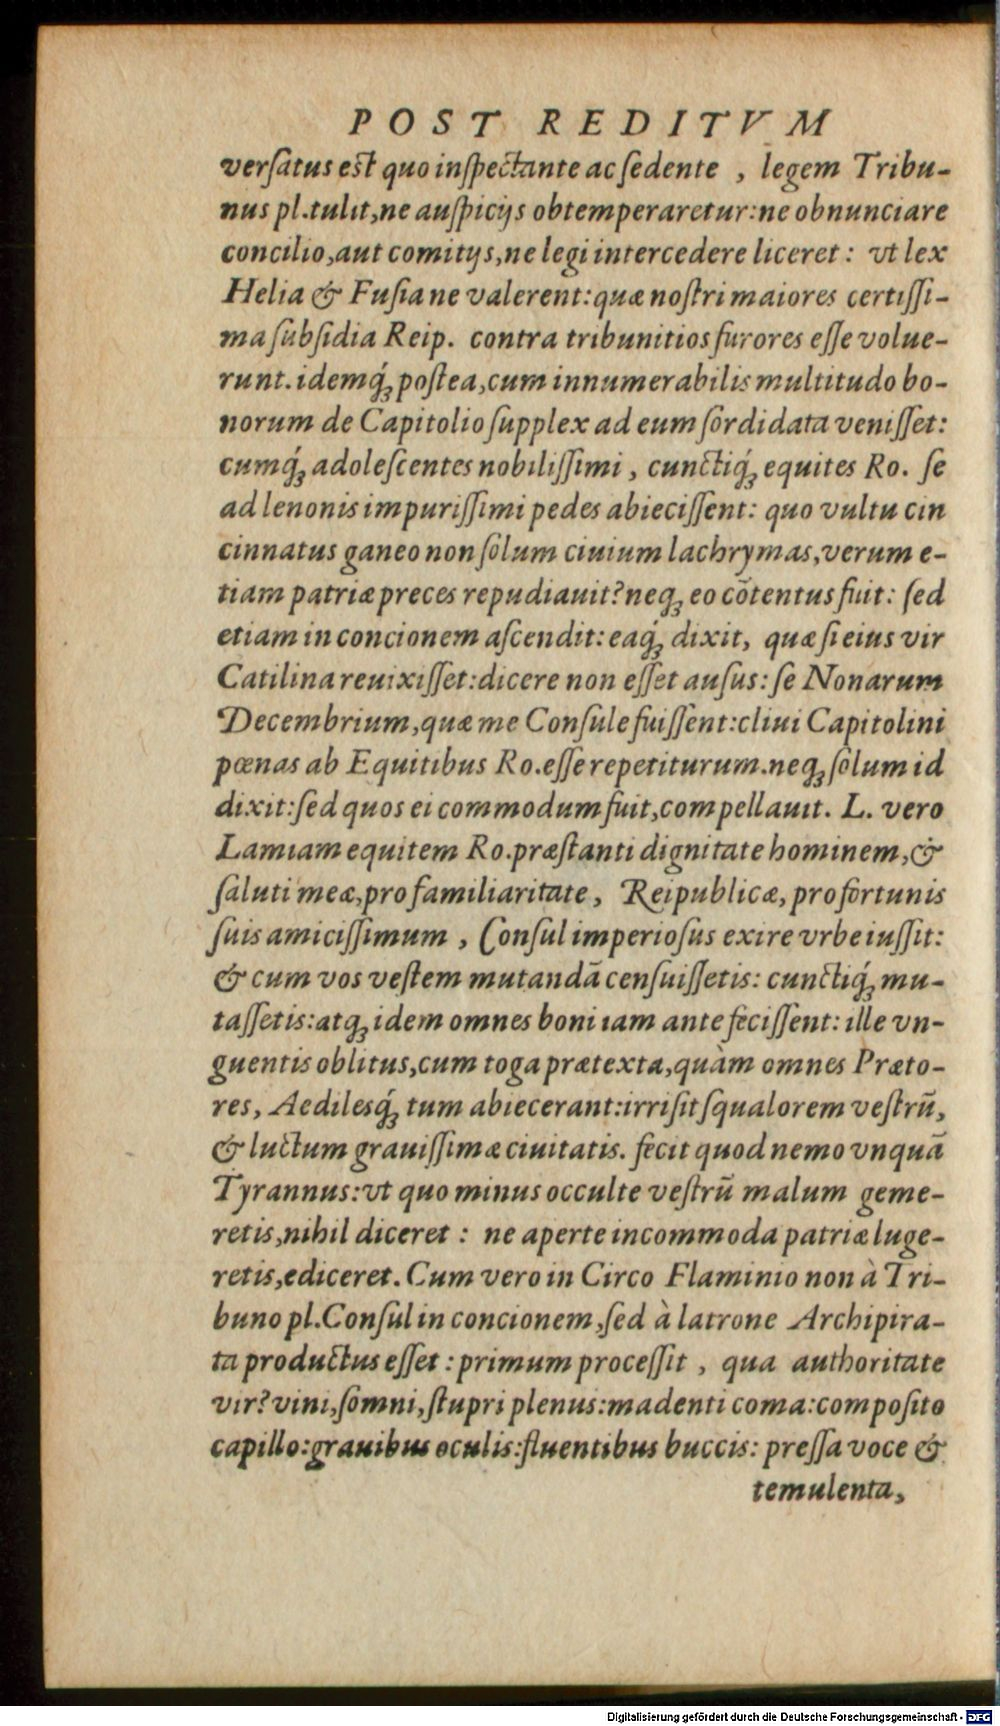 POST REDITVM
verſatus eſt quo inſpectante ac ſedente , legem Tribu-
nus pl.tulit,ne auſpicijs obtemperaretur:ne obnunciare
concilio,aut comitijs,ne legi intercedere liceret : vt lex
Helia & Fuſia ne valerent:quæ noſtri maiores certiſſi-
ma ſubſidia Reip. contra tribunitios furores eſſe volue-
runt. idemq́ꝫ poſtea,cum innumerabilis multitudo bo-
norum de Capitolio ſupplex ad eum ſordidata veniſſet:
cumq́ꝫ adoleſcentes nobiliſſimi , cunctiq́ꝫ equites Ro. ſe
ad lenonis impuriſſimi pedes abieciſſent: quo vultu cin
cinnatus ganeo non ſolum ciuium lachrymas,verum e-
tiam patriæ preces repudiauit?neqꝫ eo cōtentus fuit: ſed
etiam in concionem aſcendit: eaq́ꝫ dixit, quæ ſi eius vir
Catilina reuixiſſet:dicere non eſſet auſus: ſe Nonarum
Decembrium,quæ me Conſule fuiſſent:cliui Capitolini
pœnas ab Equitibus Ro.eſſe repetiturum.neqꝫ ſolum id
dixit:ſed quos ei commodum fuit,compellauit. L. vero
Lamiam equitem Ro.præſtanti dignitate hominem,&
ſaluti meæ,pro familiaritate , Reipublicæ, pro fortunis
ſuis amiciſſimum , Conſul imperioſus exire vrbe iuſſit:
& cum vos veſtem mutandā cenſuiſſetis: cunctiq́ꝫ mu-
taſſetis:atqꝫ idem omnes boni iam ante feciſſent: ille vn-
guentis oblitus,cum toga prætexta,quàm omnes Præto-
res, Aedilesq́ꝫ tum abiecerant:irriſit ſqualorem veſtrū,
& luctum grauiſſimæ ciuitatis. fecit quod nemo vnquā
Tyrannus:vt quo minus occulte veſtrū malum geme-
retis,nihil diceret : ne aperte incommoda patriæ luge-
retis,ediceret. Cum vero in Circo Flaminio non à Tri-
buno pl.Conſul in concionem,ſed à latrone Archipira-
ta productus eſſet : primum proceſſit , qua authoritate
vir? vini,ſomni,ſtupri plenus:madenti coma:compoſito
capillo:grauibus oculis:fluentibus buccis: preſſa voce &
temulenta,
Digitalisierung gefördert durch die Deutsche Forschungsgemeinschaft - DFG